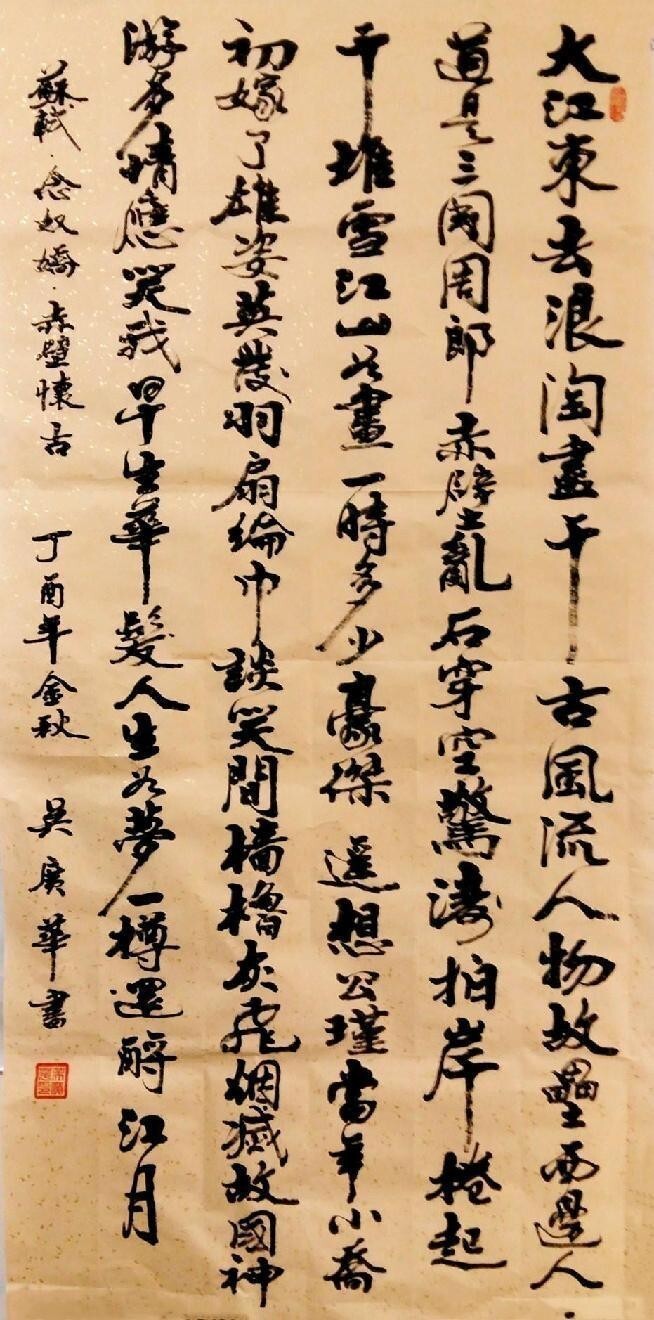 大江東去浪淘盡千古風流人物故壘西邊人
道是三國周郎赤壁亂石穿空驚濤拍岸捲起
千堆雪江山如畫一時多少豪傑遥想公瑾當年小喬
初嫁了雄姿英發羽扇綸巾談笑間檣櫓灰飛烟滅故國神
游多情應笑我早生華髮人生如夢一樽還酹江月
蘇軾·念奴嬌·赤壁懷古 丁酉年金秋 吴廣華書